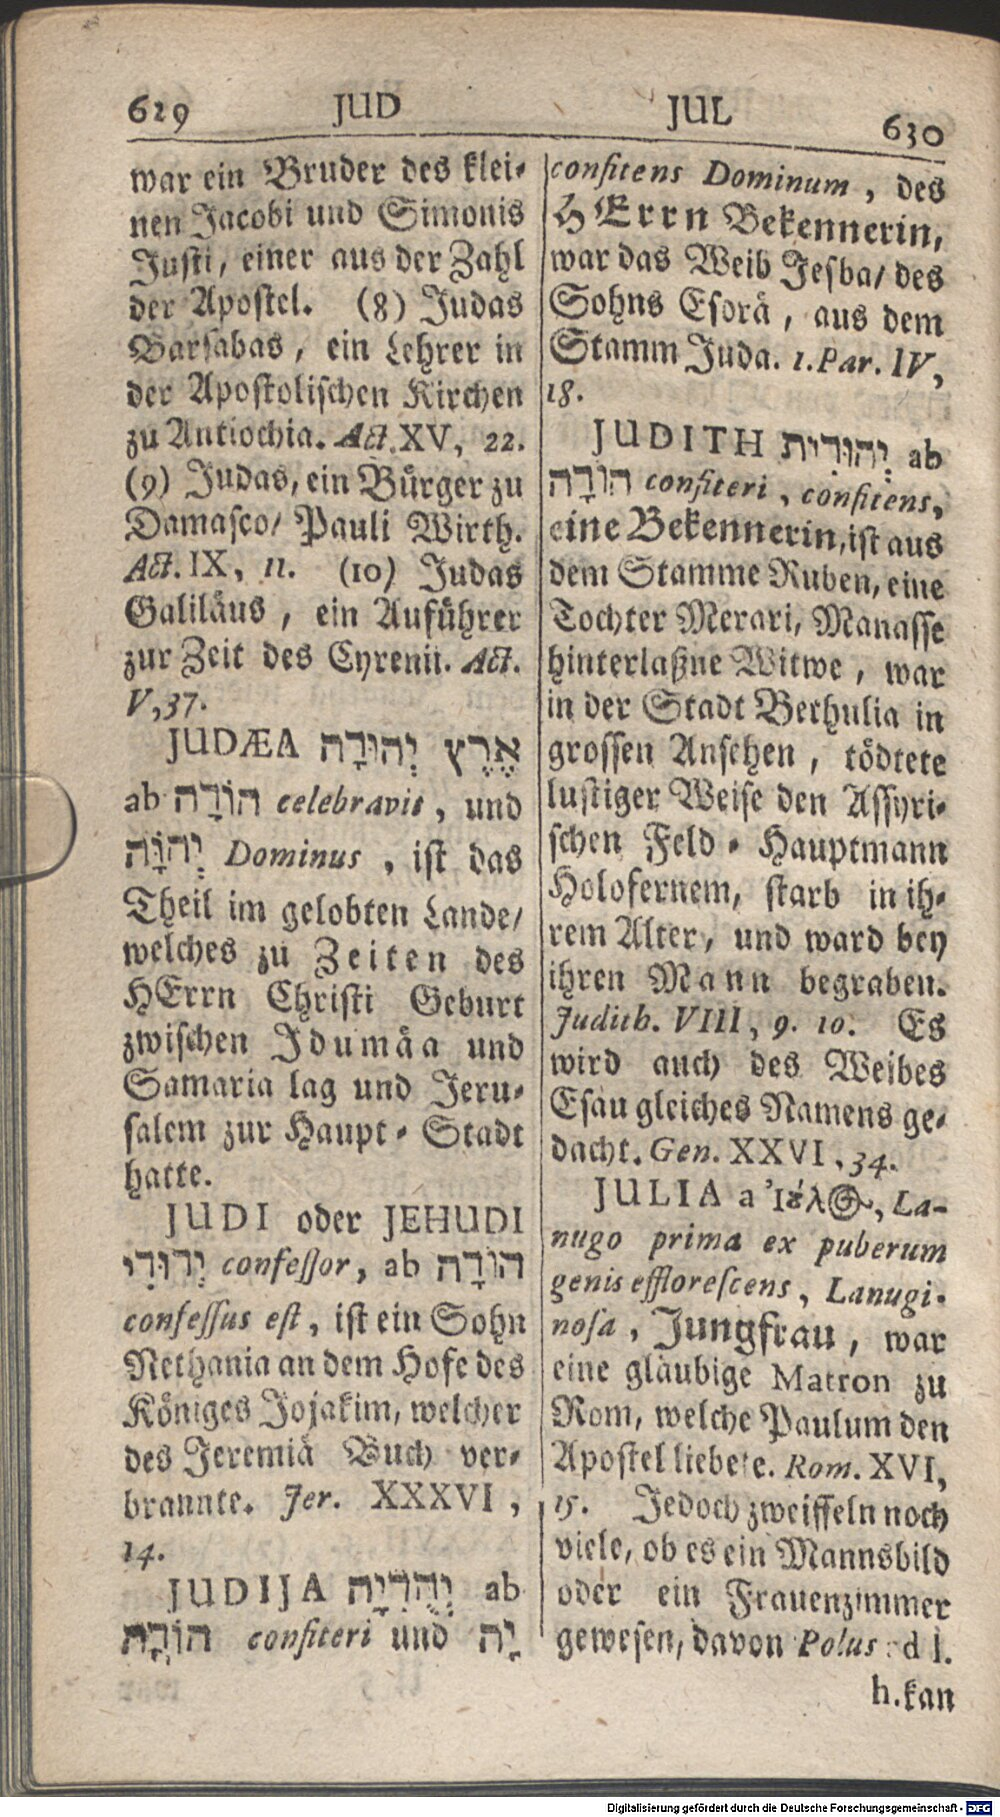 629 JUD
JUL 630
war ein Bruder des klei-
nen Jacobi und Simonis
Justi, einer aus der Zahl
der Apostel. (8) Judas
Barsabas, ein Lehrer in
der Apostolischen Kirchen
zu Antiochia. Act. XV, 22.
(9) Judas, ein Bürger zu
Damasco/ Pauli Wirth.
Act. IX, 11. (10) Judas
Galiläus, ein Auführer
zur Zeit des Cyrenii. Act.
V, 37.
JUDÆA אֶרֶץ יְהוּדָה
ab הוֹדָה celebravit, und
יְהוָֹה Dominus, ist das
Theil im gelobten Lande/
welches zu Zeiten des
HErrn Christi Geburt
zwischen Idumäa und
Samaria lag und Jeru-
salem zur Haupt-Stadt
hatte.
JUDI oder JEHUDI
יְהוּדִי confessor, ab הוֹדָה
confessus est, ist ein Sohn
Nethania an dem Hofe des
Königes Jojakim, welcher
des Jeremiä Buch ver-
brannte. Jer. XXXVI,
14.
JUDIJA יְהֻדִיָה ab
הוֹדָה confiteri und יָה
confitens Dominum, des
HErrn Bekennerin,
war das Weib Jesba/ des
Sohns Esorä, aus dem
Stamm Juda. 1. Par. IV,
18.
JUDITH יְהוּדִית ab
הוֹדָה confiteri, confitens,
eine Bekennerin, ist aus
dem Stamme Ruben, eine
Tochter Merari, Manasse
hinterlaßne Witwe, war
in der Stadt Bethulia in
grossen Ansehen, tödtete
lustiger Weise den Assyri-
schen Feld-Hauptmann
Holofernem, starb in ih-
rem Alter, und ward bey
ihren Mann begraben.
Judith. VIII, 9. 10. Es
wird auch des Weibes
Esau gleiches Namens ge-
dacht. Gen. XXVI, 34.
JULIA a Ἰούλος, La-
nugo prima ex puberum
genis efflorescens, Lanugi-
nosa, Jungfrau, war
eine gläubige Matron zu
Rom, welche Paulum den
Apostel liebete. Rom. XVI,
15. Jedoch zweiffeln noch
viele, ob es ein Mannsbild
oder ein Frauenzimmer
gewesen, davon Polus d. l.
h. kan
Digitalisierung gefördert durch die Deutsche Forschungsgemeinschaft - DFG